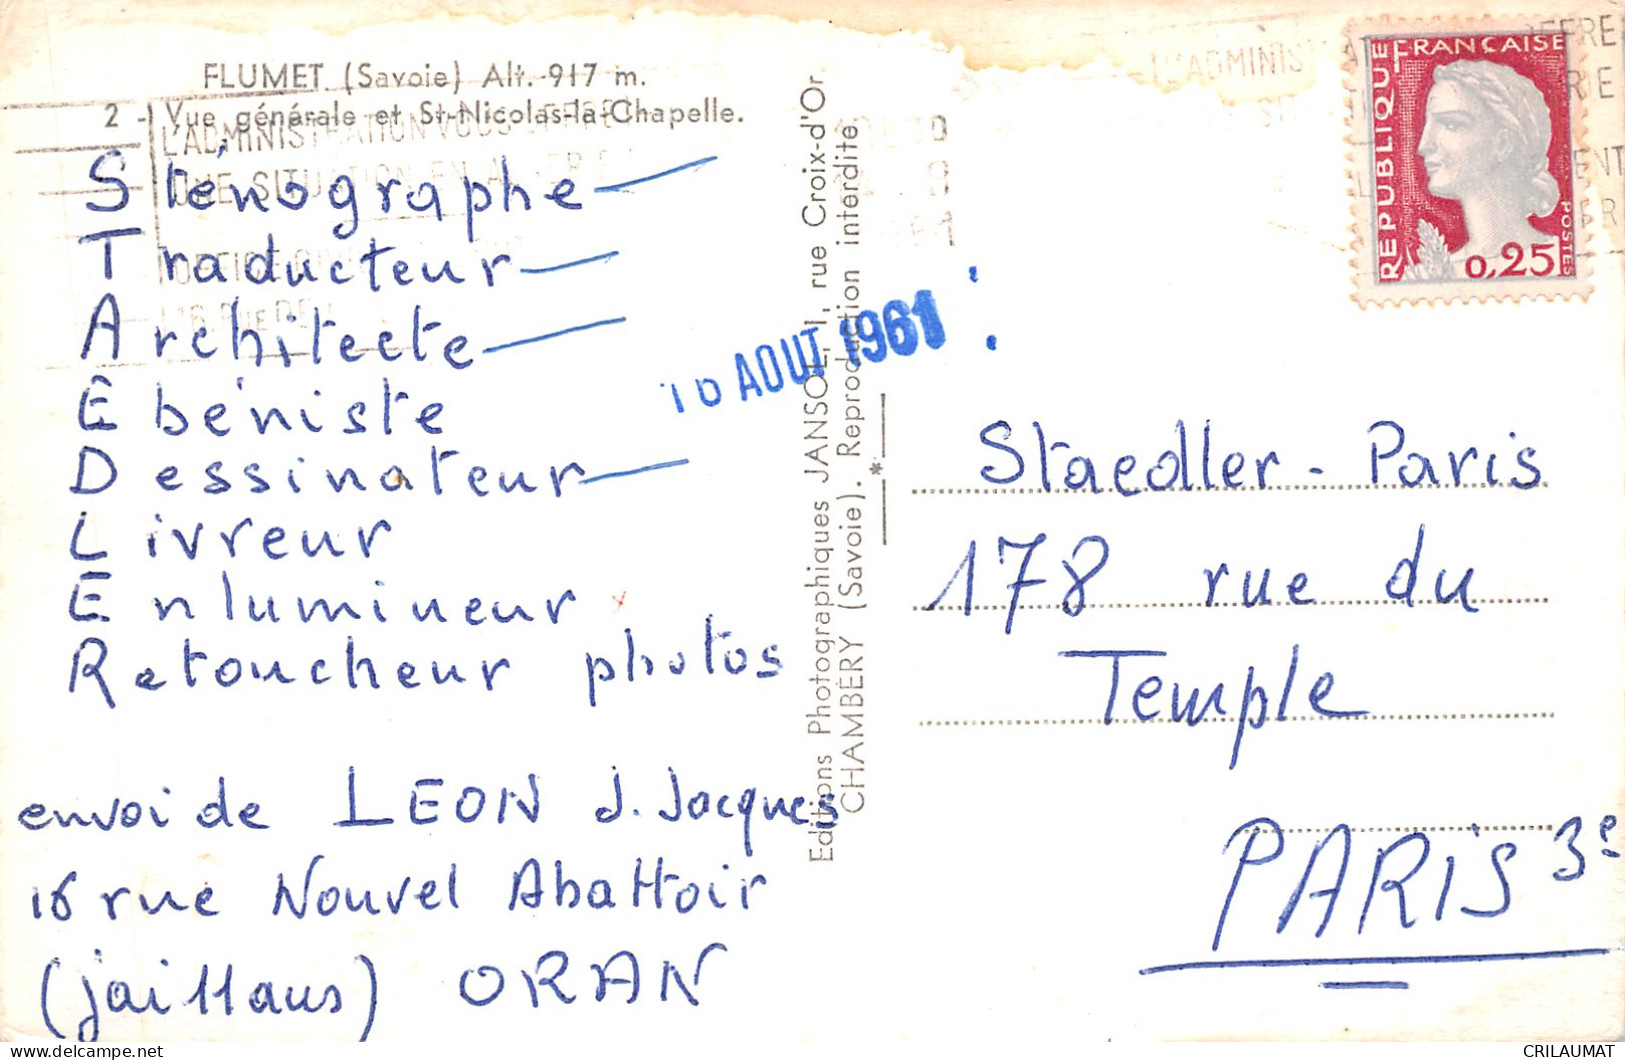 FLUMET (Savoie) Alt. 917 m.
2 - Vue générale et St-Nicolas-la-Chapelle.
L'ADMINISTRATION VOUS OFFRE
UNE SITUATION EN ALGERIE
Sténographe
Traducteur
Architecte
Ebéniste
Dessinateur
Livreur
Enlumineur
Retoucheur photos
envoi de LEON J. Jacques
16 rue Nouvel Abattoir
(jaillaus) ORAN
Editions Photographiques JANSOL, 1, rue Croix-d'Or
CHAMBÉRY (Savoie). Reproduction interdite
16 AOUT 1961
REPUBLIQUE FRANÇAISE
POSTES
0,25
Staedler - Paris
178 rue du
Temple
PARIS 3e
CRILAUMAT